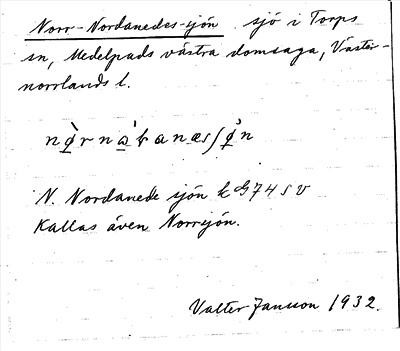 Norr-Nordanedes-sjön sjö i Torps
sn, Medelpads västra domsaga, Väster-
norrlands l.
N. Nordanede sjön k G 74 S V
Kallas även Norrsjön.
Valter Jansson 1932.